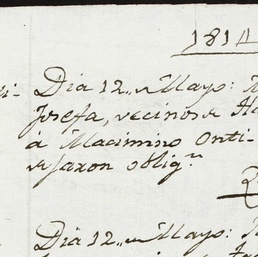 1814
Dia 12,, de Mayo:
Josefa, vecinos de
á Maximino Onti-
dejaron oblig.n
Dia 12,, de Mayo: